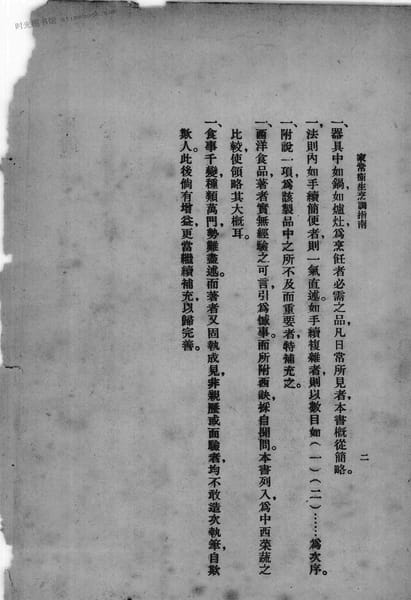 时光图书馆
家常衞生烹調指南
二
一、器具中如鍋如爐灶、爲烹飪者必需之品、凡日常所見者、本書概從簡略。
一、法則內如手續簡便者、則一氣直述、如手續複雜者、則以數目如（一）（二）……爲次序。
一、附說一項、爲該製品中之所不及而重要者、特補充之。
一、西洋食品、著者實無經驗之可言、引爲憾事、而所附西餚、採自聞問、本書列入、爲中西菜蔬之
比較、使領略其大概耳。
一、食事千變、種類萬門、勢難盡述、而著者又固執成見、非親歷或面驗者、均不敢造次執筆、自欺
欺人、此後倘有增益、更當繼續補充、以歸完善。